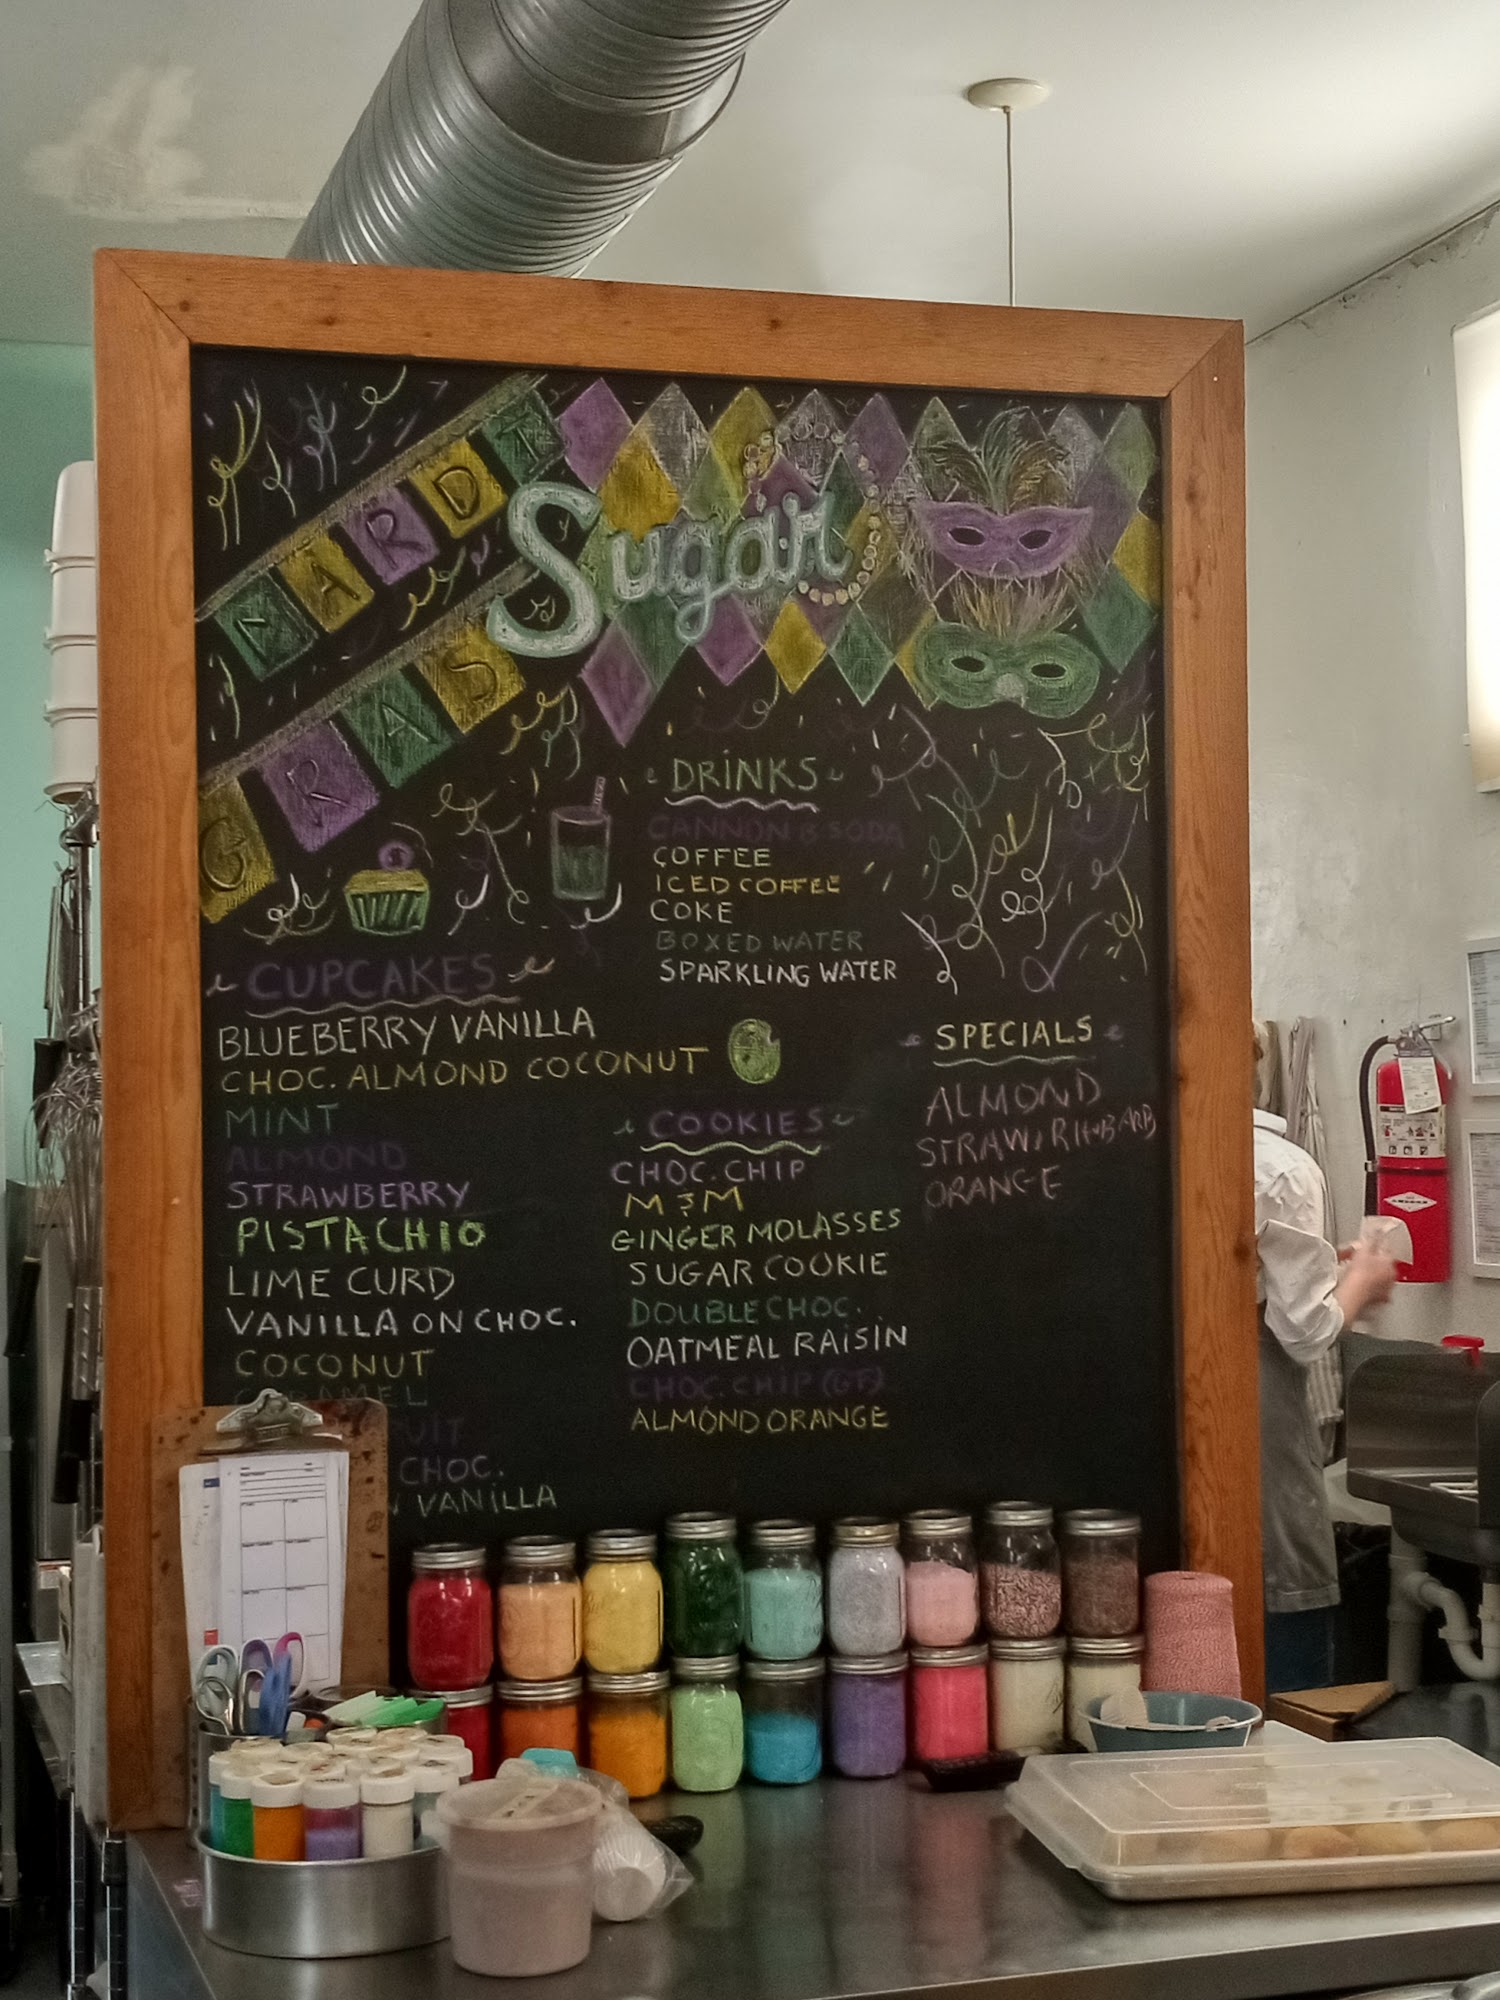 MARDI
GRAS
Sugar
DRINKS
CANNONB SODA
COFFEE
ICED COFFEE
COKE
BOXED WATER
SPARKLING WATER
CUPCAKES
BLUEBERRY VANILLA
CHOC. ALMOND COCONUT
MINT
ALMOND
STRAWBERRY
PISTACHIO
LIME CURD
VANILLA ON CHOC.
COCONUT
CARAMEL
UIT
CHOC.
VANILLA
COOKIES
CHOC. CHIP
M & M
GINGER MOLASSES
SUGAR COOKIE
DOUBLE CHOC.
OATMEAL RAISIN
CHOC. CHIP (GF)
ALMOND ORANGE
SPECIALS
ALMOND
STRAW. RHUBARB
ORANGE